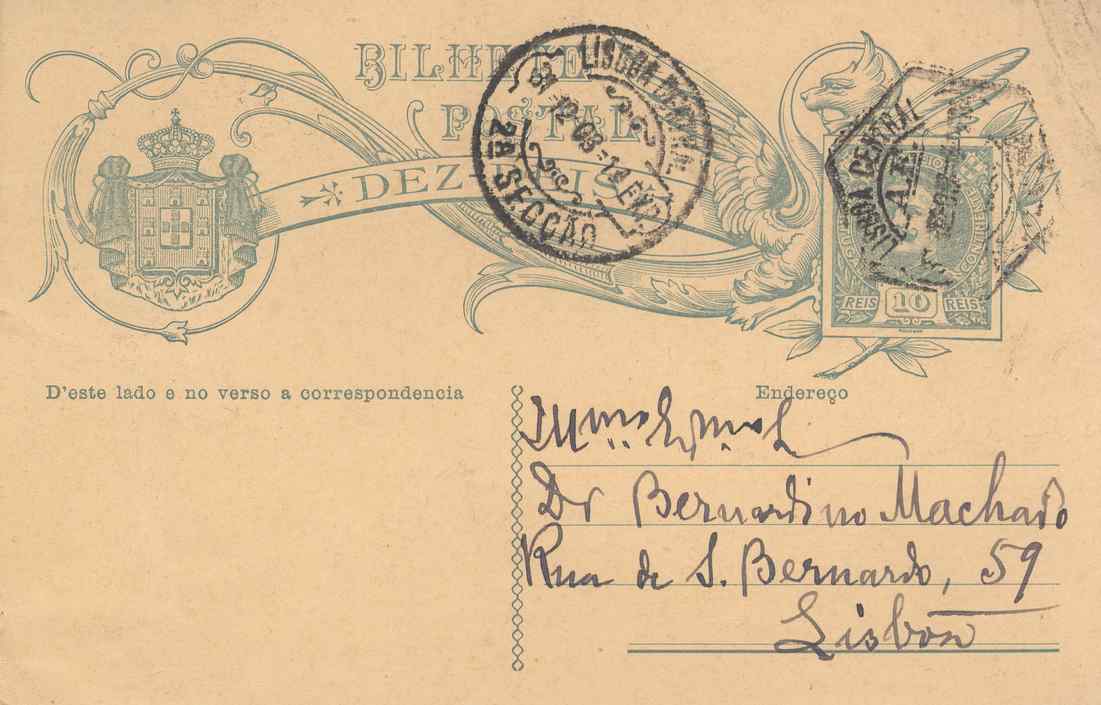 BILHETE
POSTAL
DEZ REIS
LISBOA CENTRAL
2A SECÇÃO
LISBOA CENTRAL
REIS 10 REIS
D'este lado e no verso a correspondencia
Endereço
Illmo Exmo
Dr Bernardino Machado
Rua de S. Bernardo, 59
Lisboa